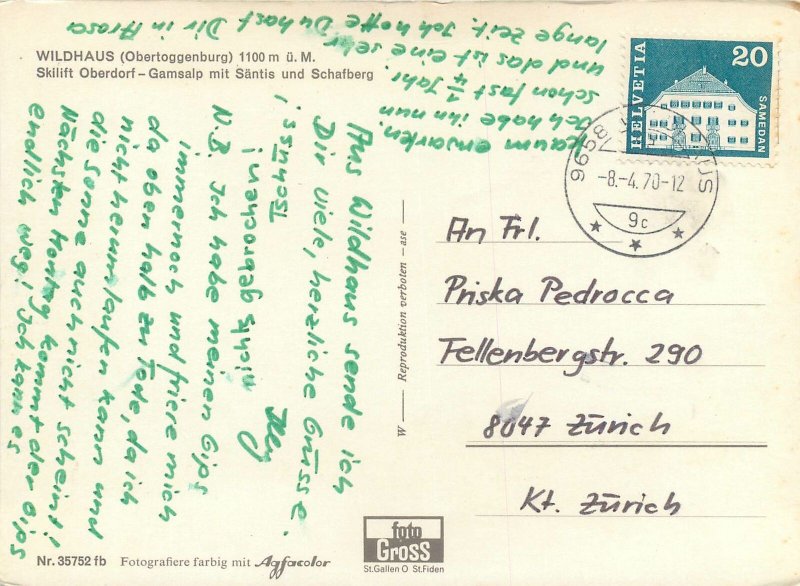 WILDHAUS (Obertoggenburg) 1100 m ü. M.
Skilift Oberdorf – Gamsalp mit Säntis und Schafberg
Aus Wildhaus sende ich
Dir viele, herzliche Grüsse.
N.B. Ich habe meinen Gips
immernoch und friere mich
da oben halb zu Tode, da ich
nicht herumlaufen kann und
die Sonne auch nicht scheint!
Nächsten Montag kommt der Gips
endlich weg! Ich kann es
kaum erwarten.
Ich habe ihn nun
schon fast 1/4 Jahr.
und das ist eine sehr
lange Zeit. Ich hoffe Du hast Dir in Arosa
nichts gebrochen!
Tschüss!
HELVETIA
20
SAMEDAN
9658 WILDHAUS
-8.-4.70-12
9c
An Frl.
Priska Pedrocca
Fellenbergstr. 290
8047 Zürich
Kt. Zürich
W — Reproduktion verboten – ase —
Nr. 35752 fb Fotografiere farbig mit Agfacolor
foto
GROSS
St.Gallen O St.Fiden